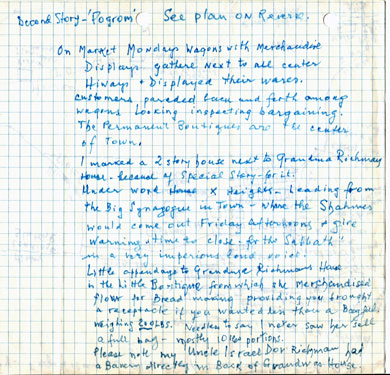 Second Story - 'Pogrom' See plan on Reverse.
On Market Mondays Wagons with Merchandise
Displays gather next to all center
Hiways + Displayed their wares.
customers paraded back and forth among
wagons Looking inspecting bargaining.
The Permanent Boutiques are the center
of Town.
I marked a 2 story house next to Grandma Richman
House - Legend of Special Story - for it.
Under word House X Heights - Leading from
the Big Synagogue in Town - where the Shahmes
would come out Friday afternoons & give
warning + time to close - for the Sabbath"
in a very imperious loud voice!
Little appendage to Grandma Richmans House
is the Little Boutique from which she Merchandised
flour for Bread making providing you brought
a receptacle if you wanted less than a Bagful
weighing 200 LBS. Needless to say I never saw her sell
a full bag - mostly 10 lbs portions.
Please note my Uncle Israel Dov Richman had
a Bakery directly in Back of Grandma's House.